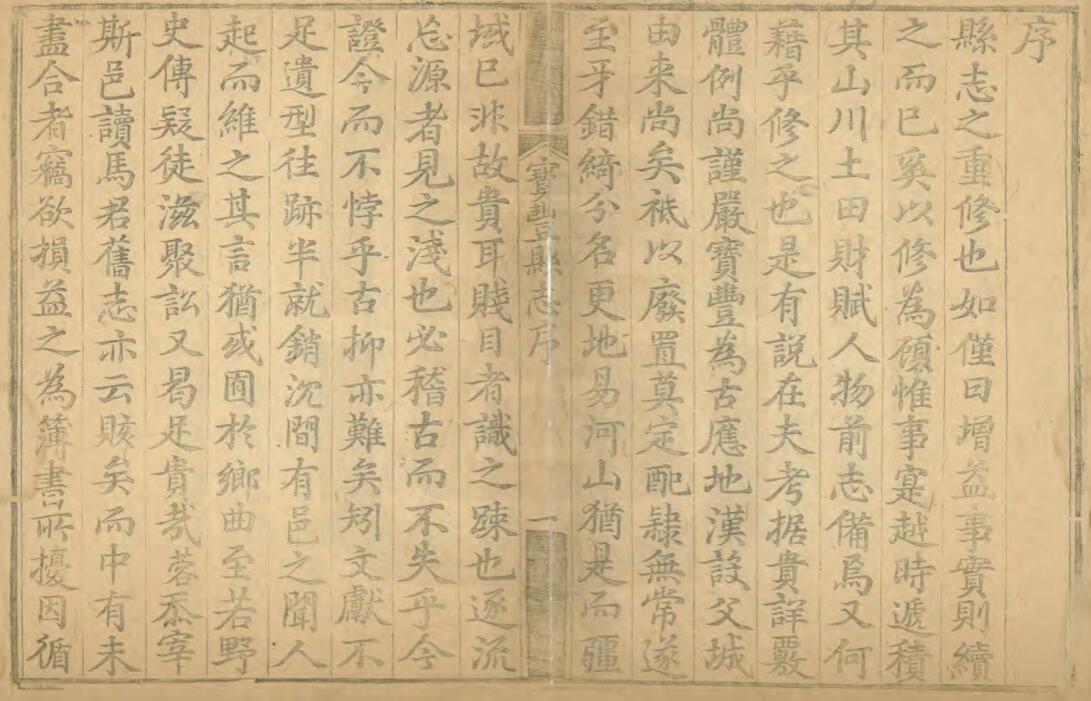 序
縣志之重修也如僅曰增益事實則續
之而已奚以修為顧惟事寔越時遞積
其山川土田財賦人物前志備焉又何
藉乎修之也是有説在夫考据貴詳覈
體例尚謹嚴寶豐為古應地漢設父城
由来尚矣祗以廢置莫定配隷無常遂
至牙錯綺分名更地易河山猶是而疆
寶豐縣志序
一
域已非故貴耳賤目者識之疎也逐流
忘源者見之淺也必稽古而不失乎今
證今而不悖乎古抑亦難矣矧文獻不
足遺型往跡半就銷沈間有邑之聞人
起而維之其言猶或囿於鄉曲至若野
史傳疑徒滋聚訟又曷足貴哉蓉忝宰
斯邑讀馬君舊志亦云賅矣而中有未
盡合者竊欲損益之為簿書所擾因循